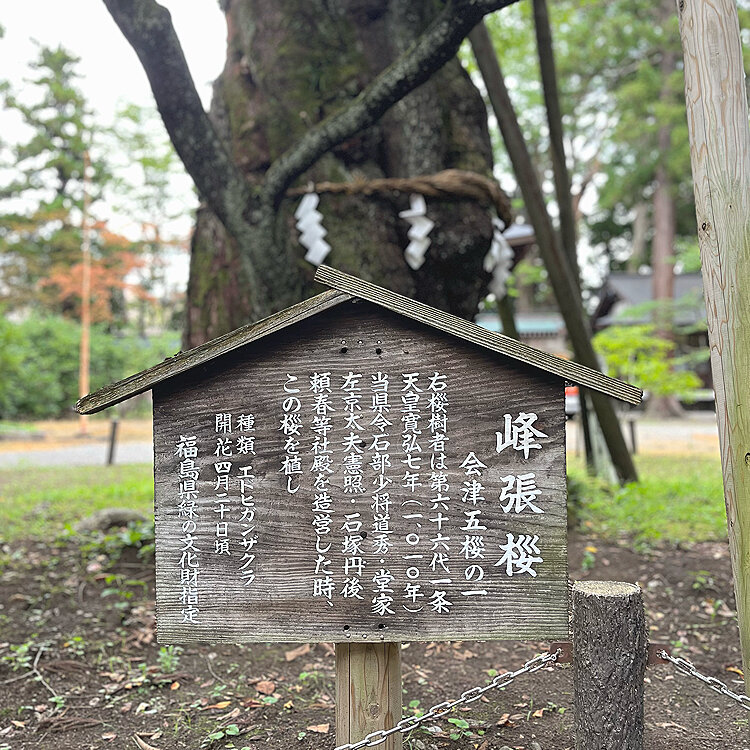 峰張桜
会津五桜の一
右桜樹者は第六十六代一条
天皇寛弘七年（一、〇一〇年）
当県令石部少将道秀・堂家
左京太夫憲照 石塚円後
頼春等社殿を造営した時、
この桜を植し
種類 エドヒガンザクラ
開花四月二十日頃
福島県緑の文化財指定